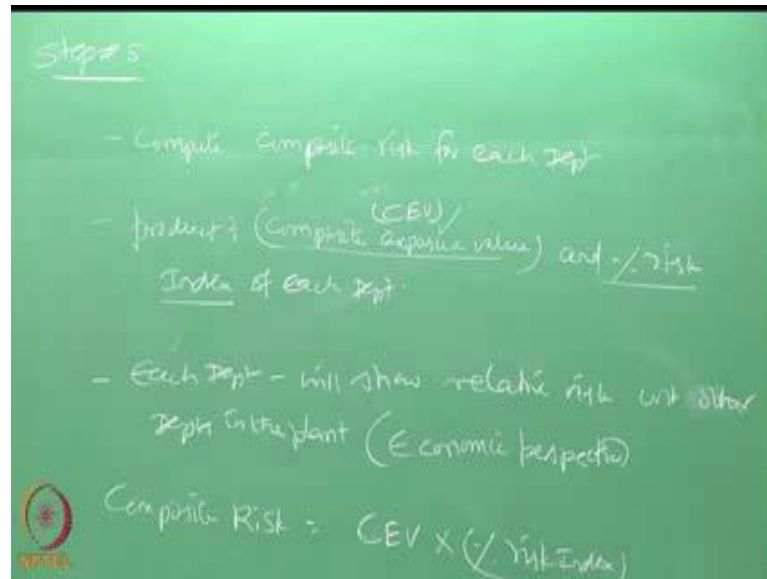 Step # 5
- Compute Composite risk for each Dept
(CEV)
- product of (Composite exposure value) and % risk
Index of each Dept.
- Each Dept - will show relative risk wrt other
Depts in the plant (Economic perspective)
Composite Risk = CEV x (% risk Index)
NPTEL